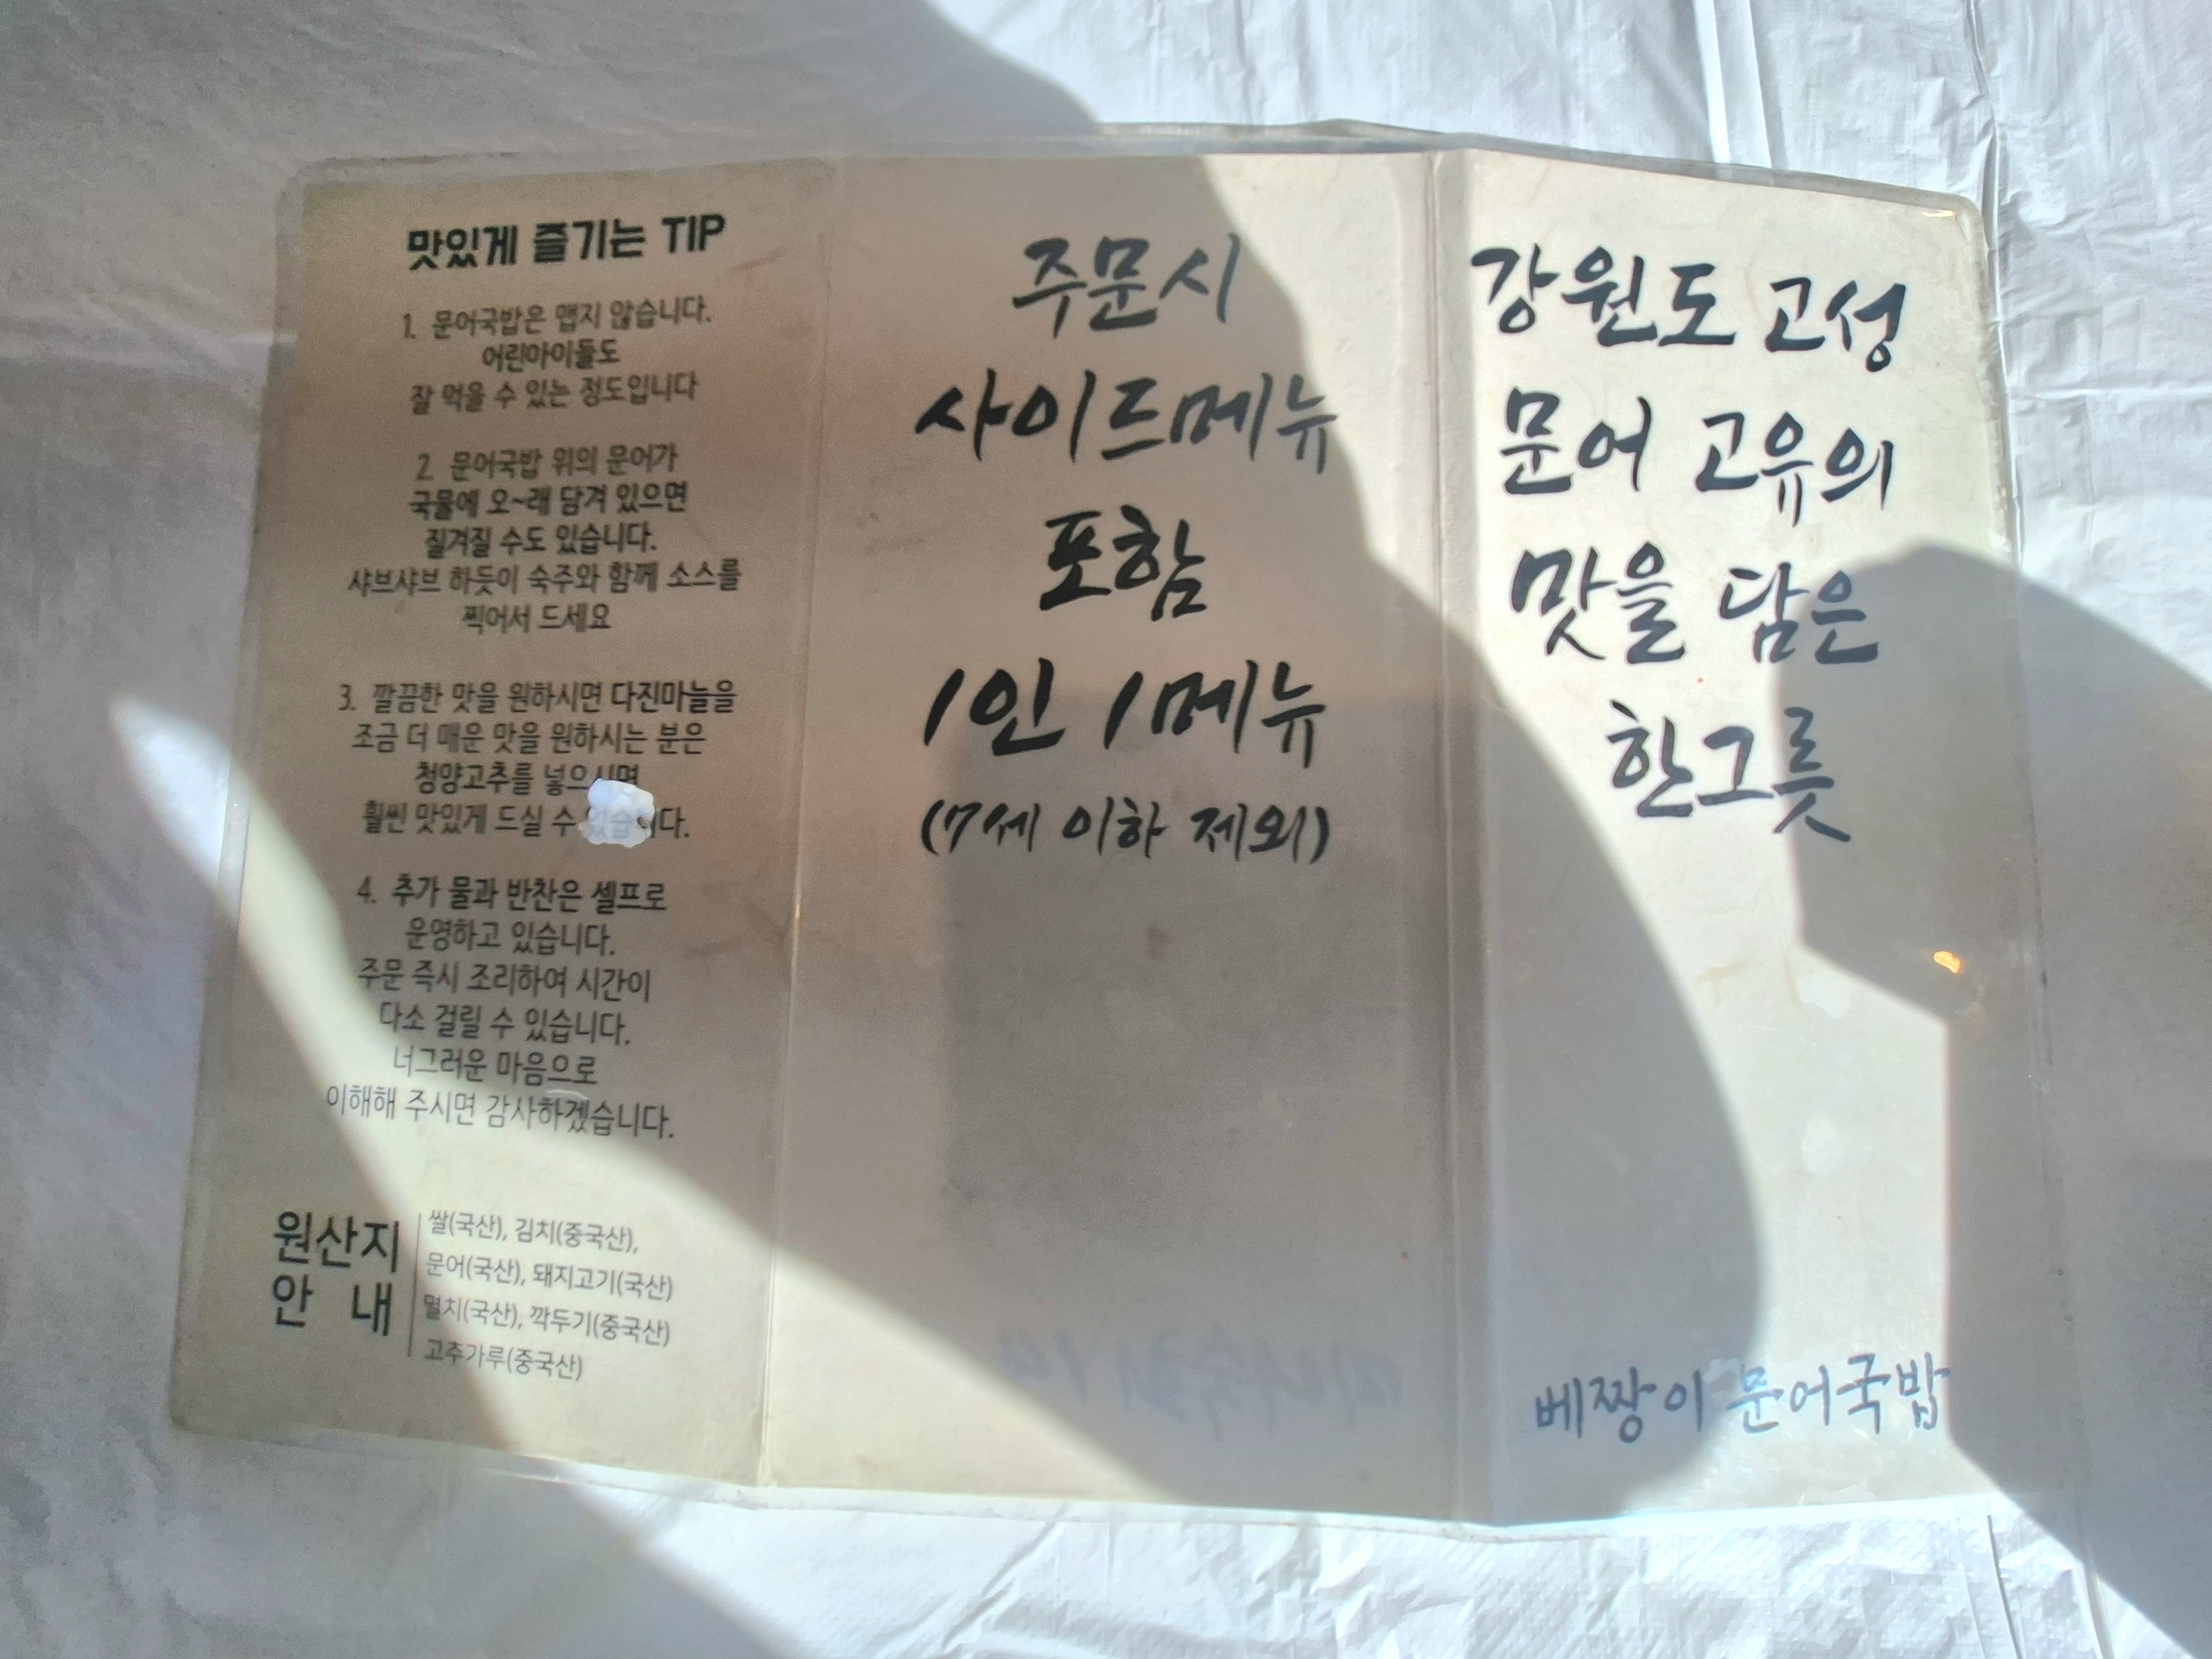 맛있게 즐기는 TIP
1. 문어국밥은 맵지 않습니다.
어린아이들도
잘 먹을 수 있는 정도입니다
2. 문어국밥 위의 문어가
국물에 오~래 담겨 있으면
질겨질 수도 있습니다.
샤브샤브 하듯이 숙주와 함께 소스를
찍어서 드세요
3. 깔끔한 맛을 원하시면 다진마늘을
조금 더 매운 맛을 원하시는 분은
청양고추를 넣으시면
훨씬 맛있게 드실 수 있습니다.
4. 추가 물과 반찬은 셀프로
운영하고 있습니다.
주문 즉시 조리하여 시간이
다소 걸릴 수 있습니다.
너그러운 마음으로
이해해 주시면 감사하겠습니다.
원산지
안 내
쌀(국산), 김치(중국산),
문어(국산), 돼지고기(국산)
멸치(국산), 깍두기(중국산)
고추가루(중국산)
주문시
사이드메뉴
포함
1인 1메뉴
(7세 이하 제외)
강원도 고성
문어 고유의
맛을 담은
한그릇
베짱이 문어국밥